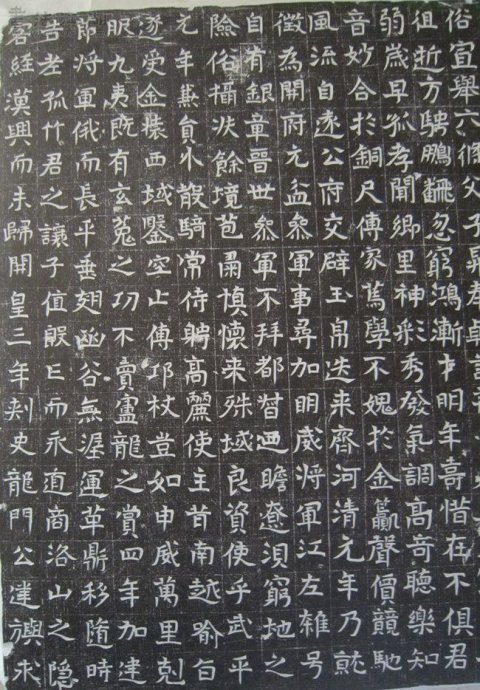 俗宣舉六條父子
徂逝方騁鵬翻忽窮鴻漸才明年壽惜在不俱君
弱歲早孤孝聞鄉里神彩秀發氣調高奇聽樂知
音妙合於銅尺傳家舊學不媿於金籯聲價競馳
風流自遠公府交辟玉帛迭來齊河清元年乃就
徵為開府元盆參軍事尋加明威將軍江左雜号
自有銀章晉世參軍不拜都督迴瞻遼浿窮地之
險俗攝狀餘境苞肅慎懷來殊域良資使乎武平
元年兼員外散騎常侍騁高麗使主昔南越喻白
遂受金裝西域鑿空止傳邛杖豈如申威萬里剋
服九夷既有玄菟之功不賣盧龍之賞四年加建
節將軍俄而長平垂翅函谷無渥運革鼎移隨時
告老孤竹君之讓子值殷亡而永遁商洛山之隱
客經漢興而未歸開皇三年刾史龍門公達旟求